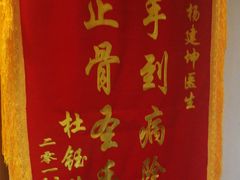 杨建坤医生
手到病除
正骨圣手
杜钰
二零一